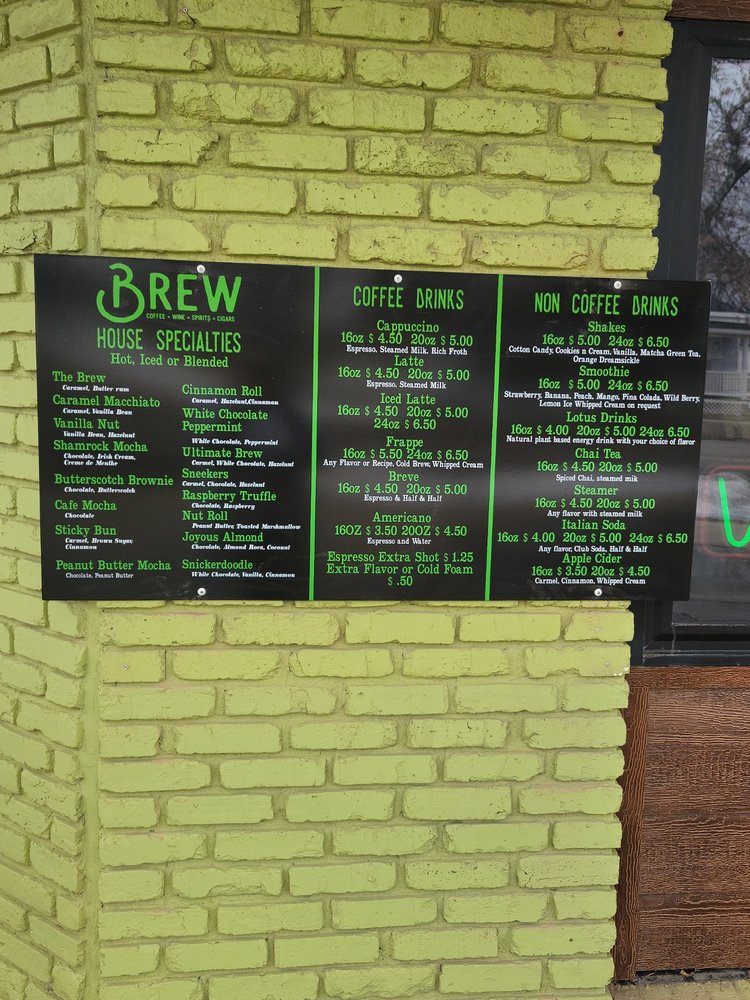 BREW
COFFEE • WINE • SPIRITS • CIGARS
HOUSE SPECIALTIES
Hot, Iced or Blended
The Brew
Caramel, Butter rum
Caramel Macchiato
Caramel, Vanilla Bean
Vanilla Nut
Vanilla Bean, Hazelnut
Shamrock Mocha
Chocolate, Irish Cream,
Creme de Menthe
Butterscotch Brownie
Chocolate, Butterscotch
Cafe Mocha
Chocolate
Sticky Bun
Carmel, Brown Sugar,
Cinnamon
Peanut Butter Mocha
Chocolate, Peanut Butter
Cinnamon Roll
Caramel, Hazelnut,Cinnamon
White Chocolate
Peppermint
White Chocolate, Peppermint
Ultimate Brew
Carmel, White Chocolate, Hazelnut
Sneekers
Carmel, Chocolate, Hazelnut
Raspberry Truffle
Chocolate, Raspberry
Nut Roll
Peanut Butter, Toasted Marshmallow
Joyous Almond
Chocolate, Almond Roca, Coconut
Snickerdoodle
White Chocolate, Vanilla, Cinnamon
COFFEE DRINKS
Cappuccino
16oz $ 4.50 20oz $ 5.00
Espresso, Steamed Milk, Rich Froth
Latte
16oz $ 4.50 20oz $ 5.00
Espresso, Steamed Milk
Iced Latte
16oz $ 4.50 20oz $ 5.00
24oz $ 6.50
Frappe
16oz $ 5.50 24oz $ 6.50
Any Flavor or Recipe, Cold Brew, Whipped Cream
Breve
16oz $ 4.50 20oz $ 5.00
Espresso & Half & Half
Americano
16OZ $ 3.50 20OZ $ 4.50
Espresso and Water
Espresso Extra Shot $ 1.25
Extra Flavor or Cold Foam
$ .50
NON COFFEE DRINKS
Shakes
16oz $ 5.00 24oz $ 6.50
Cotton Candy, Cookies n Cream, Vanilla, Matcha Green Tea,
Orange Dreamsickle
Smoothie
16oz $ 5.00 24oz $ 6.50
Strawberry, Banana, Peach, Mango, Pina Colada, Wild Berry,
Lemon Ice Whipped Cream on request
Lotus Drinks
16oz $ 4.00 20oz $ 5.00 24oz $ 6.50
Natural plant based energy drink with your choice of flavor
Chai Tea
16oz $ 4.50 20oz $ 5.00
Spiced Chai, steamed milk
Steamer
16oz $ 4.50 20oz $ 5.00
Any flavor with steamed milk
Italian Soda
16oz $ 4.00 20oz $ 5.00 24oz $ 6.50
Any flavor, Club Soda, Half & Half
Apple Cider
16oz $ 3.50 20oz $ 4.50
Carmel, Cinnamon, Whipped Cream